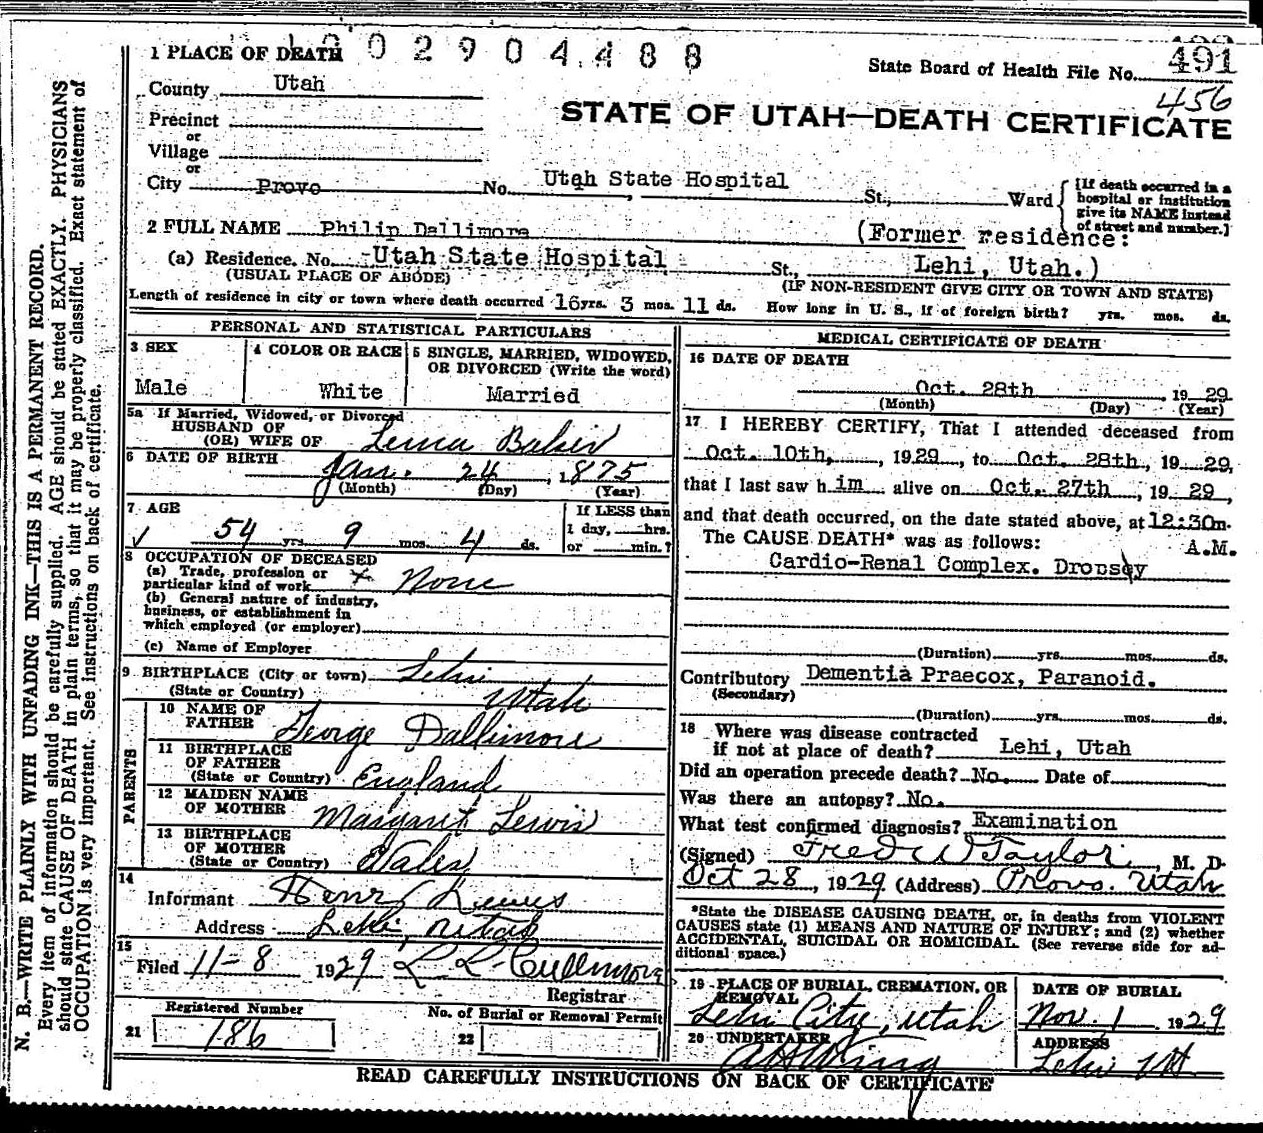 1 PLACE OF DEATH 02904488
State Board of Health File No. 491
456
County Utah
STATE OF UTAH—DEATH CERTIFICATE
Precinct
or
Village
or
City Provo No. Utah State Hospital St., Ward
[If death occurred in a hospital or institution give its NAME instead of street and number.]
2 FULL NAME Philip Dallimore (Former residence:
(a) Residence. No. Utah State Hospital St., Lehi, Utah.)
(USUAL PLACE OF ABODE) (IF NON-RESIDENT GIVE CITY OR TOWN AND STATE)
Length of residence in city or town where death occurred 16 yrs. 3 mos. 11 ds. How long in U. S., if of foreign birth? yrs. mos. ds.
PERSONAL AND STATISTICAL PARTICULARS
3 SEX
Male
4 COLOR OR RACE
White
5 SINGLE, MARRIED, WIDOWED, OR DIVORCED (Write the word)
Married
5a If Married, Widowed, or Divorced
HUSBAND OF
(OR) WIFE OF Lema Baker
6 DATE OF BIRTH
Jan. 24, 1875
(Month) (Day) (Year)
7 AGE
54 yrs. 9 mos. 4 ds.
If LESS than
1 day, hrs.
or min.?
8 OCCUPATION OF DECEASED
(a) Trade, profession or
particular kind of work None
(b) General nature of industry,
business, or establishment in
which employed (or employer)
(c) Name of Employer
9 BIRTHPLACE (City or town) Lehi
(State or Country) Utah
PARENTS
10 NAME OF
FATHER George Dallimore
11 BIRTHPLACE
OF FATHER
(State or Country) England
12 MAIDEN NAME
OF MOTHER Margaret Lewis
13 BIRTHPLACE
OF MOTHER
(State or Country) Wales
14
Informant Henry Lewis
Address Lehi, Utah
15
Filed 11-8 1929 L L Cullimore
Registrar
Registered Number
21 186
No. of Burial or Removal Permit
22
MEDICAL CERTIFICATE OF DEATH
16 DATE OF DEATH
Oct. 28th, 1929
(Month) (Day) (Year)
17 I HEREBY CERTIFY, That I attended deceased from
Oct. 10th, 1929, to Oct. 28th, 1929,
that I last saw him alive on Oct. 27th, 1929,
and that death occurred, on the date stated above, at 12:30 m.
The CAUSE DEATH* was as follows: A.M.
Cardio-Renal Complex. Dropsy
(Duration) yrs. mos. ds.
Contributory Dementia Praecox, Paranoid.
(Secondary)
(Duration) yrs. mos. ds.
18 Where was disease contracted
if not at place of death? Lehi, Utah
Did an operation precede death? No. Date of
Was there an autopsy? No.
What test confirmed diagnosis? Examination
(Signed) Fred W Taylor, M. D.
Oct 28, 1929 (Address) Provo. Utah
*State the DISEASE CAUSING DEATH, or, in deaths from VIOLENT
CAUSES state (1) MEANS AND NATURE OF INJURY; and (2) whether
ACCIDENTAL, SUICIDAL OR HOMICIDAL. (See reverse side for ad-
ditional space.)
19 PLACE OF BURIAL, CREMATION, OR
REMOVAL
Lehi City, Utah
DATE OF BURIAL
Nov. 1 1929
20 UNDERTAKER
ADDRESS
Lehi Ut.
READ CAREFULLY INSTRUCTIONS ON BACK OF CERTIFICATE
N. B.—WRITE PLAINLY WITH UNFADING INK—THIS IS A PERMANENT RECORD.
Every item of information should be carefully supplied. AGE should be stated EXACTLY. PHYSICIANS
should state CAUSE OF DEATH in plain terms, so that it may be properly classified. Exact statement of
OCCUPATION is very important. See instructions on back of certificate.